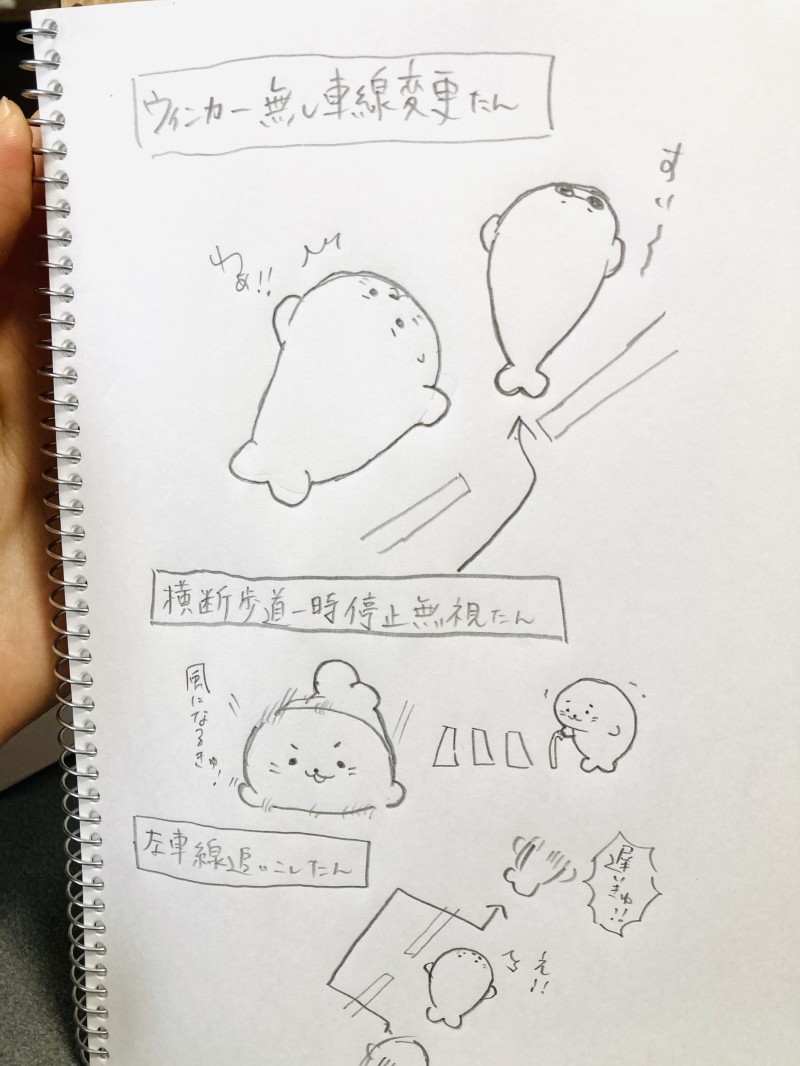 ウィンカー無し車線変更たん
すぃ〜
わぁ!!
横断歩道一時停止無視たん
風になるきゅ!
左車線追いこしたん
遅いきゅ!!
え!!